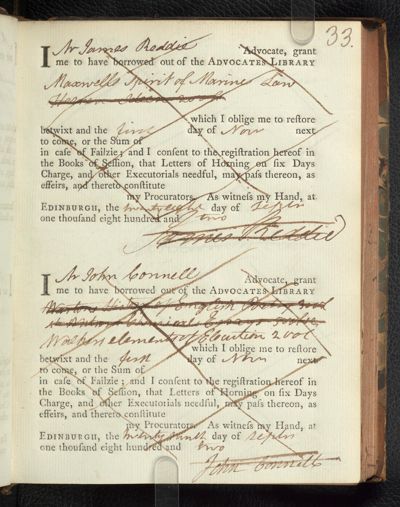 33.
I Mr James Reddie Advocate, grant
me to have borrowed out of the ADVOCATES LIBRARY
Maxwells Spirit of Marine Law
which I oblige me to reſtore
betwixt and the first day of Novr next
to come, or the Sum of
in caſe of Failzie; and I conſent to the regiſtration hereof in
the Books of Seſſion, that Letters of Horning on ſix Days
Charge, and other Executorials needful, may paſs thereon, as
effeirs, and thereto conſtitute
my Procurators. As witneſs my Hand, at
EDINBURGH, the twenty eight day of Septr
one thouſand eight hundred and two
James Reddie
I Mr John Connell Advocate, grant
me to have borrowed out of the ADVOCATES LIBRARY
Wartons History of English Poetry 3 vol
Essays
Walkers elements of Elocution 2 vols
which I oblige me to reſtore
betwixt and the first day of Novr next
to come, or the Sum of
in caſe of Failzie; and I conſent to the regiſtration hereof in
the Books of Seſſion, that Letters of Horning on ſix Days
Charge, and other Executorials needful, may paſs thereon, as
effeirs, and thereto conſtitute
my Procurators. As witneſs my Hand, at
EDINBURGH, the twenty ninth day of Septr
one thouſand eight hundred and two
John Connell